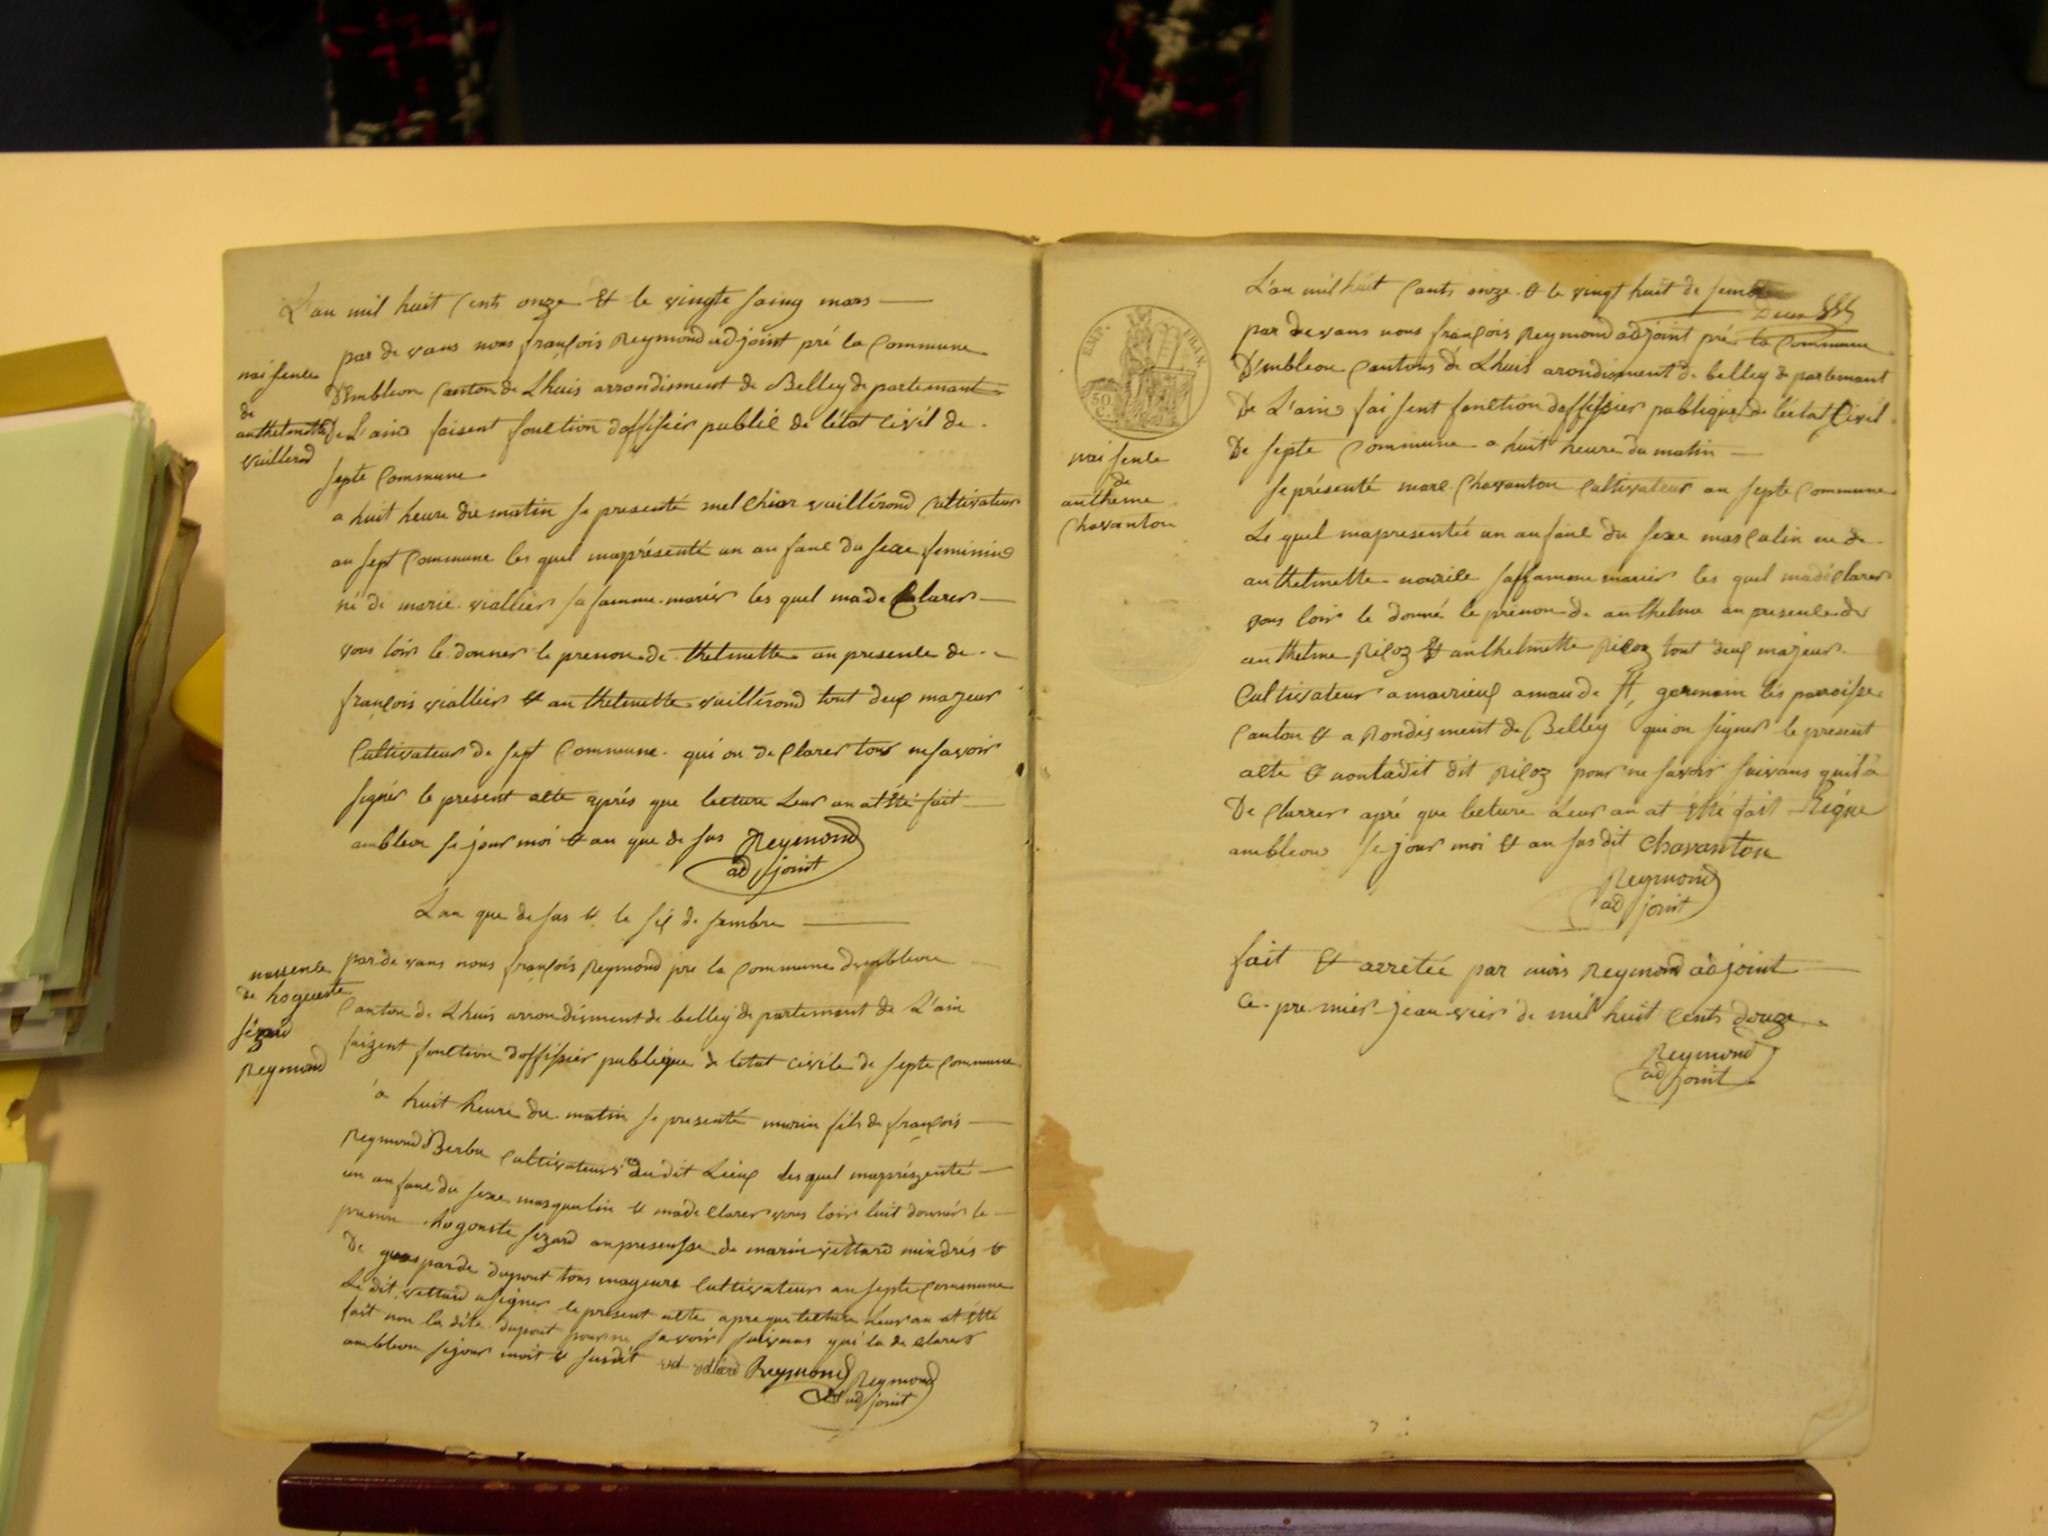 L'an mil huit cents onze & le vingte saing mars
naisenle
de
anthelmette
vuillerod
par de vans nous françois Reymond adjoint pré la Commune
D'embleon Canton de Lhuis arrondisment de Belley de partemant
De L'ain faisent fonction d'offisier publié de l'état Civil de
septe Commune
a huit heure du matin se presenté melchior vuillérond Cultivateur
au sept Commune les quel maprésenté un anfane du sexe feminin
né de marie viallier sa famme marier les quel ma de Clarer
vous loir le donner le prenon de thelmette an presenle de
françois viallier & anthelmette vuillérond tout deux majeur
Cultivateur de sept Commune qui on de Clarer tous ne savoir
signér le present acte aprés que lecture Leur an at été fait
ambleon se jour moi & an que de sus Reymond
adjoint
L'an que de sus & le six de sambre
naisenle
de hogueste
sézard
Reymond
par de vans nous françois Reymond pre la Commune dembleon
Canton de Lhuis arrondisment de belley de partement de L'ain
faizent fonction d'offisier publique de létat civile de septe Commune
a huit heure du matin se presenté marin fils de françois
Reymond Berbu Cultivateurs dudit Lieux les quel maprészenté
un anfane du sexe masqualin & made Clarer vous loir luit donnér le
prenon hogouste sezard an presensse de marin vettard mindrés &
De guasparde dupont tous mageurs Cultivateur au septe Commune
Le dit vettard a signer le present alte apre que lecture Leur an at etté
fait non la dite dupont pour ne savoir suivans qui la de clarer
ambleon se jour moit & susdit vettard Reymond Reymond
adjoint
L'an mil huit Cants onze & le vingt huit de sembre
EMP. FRAN.
50 C.
naisenle
de
antheme
Chavanton
par de vans nous françois Reymond adjoint pré la Commune
D'embleon Cantons de Lhuis arondisment de belley de partemant
De L'ain fai sent fonction doffisier publique de létat Civil
De septe Commune a huit heure du matin
se présenté marc Chavanton Cultivateur au septe Commune
Le quel mapresentée un anfane du sexe masCalin ne de
anthelmette sa famme marier les quel madéClarer
vous loir le donné le prénon de anthelme an presenle de
anthelme Piloz & anthelmette Piloz tout deux majeur
Cultivateur a mairieux amau de St germain les paroisse
Canton & a Rondisment de Belley qui on signer le present
alte & non ladit dit Piloz pour ne savoir suivans quil à
De Clarrer apré que lecture à Leur an at étté fait Signe
ambleon se jour moi & an susdit Chavanton
Reymond
adjoint
fait & arretée par mois Reymond adjoint
ce premier jeanvier de mil huit Cents douze
Reymond
adjoint